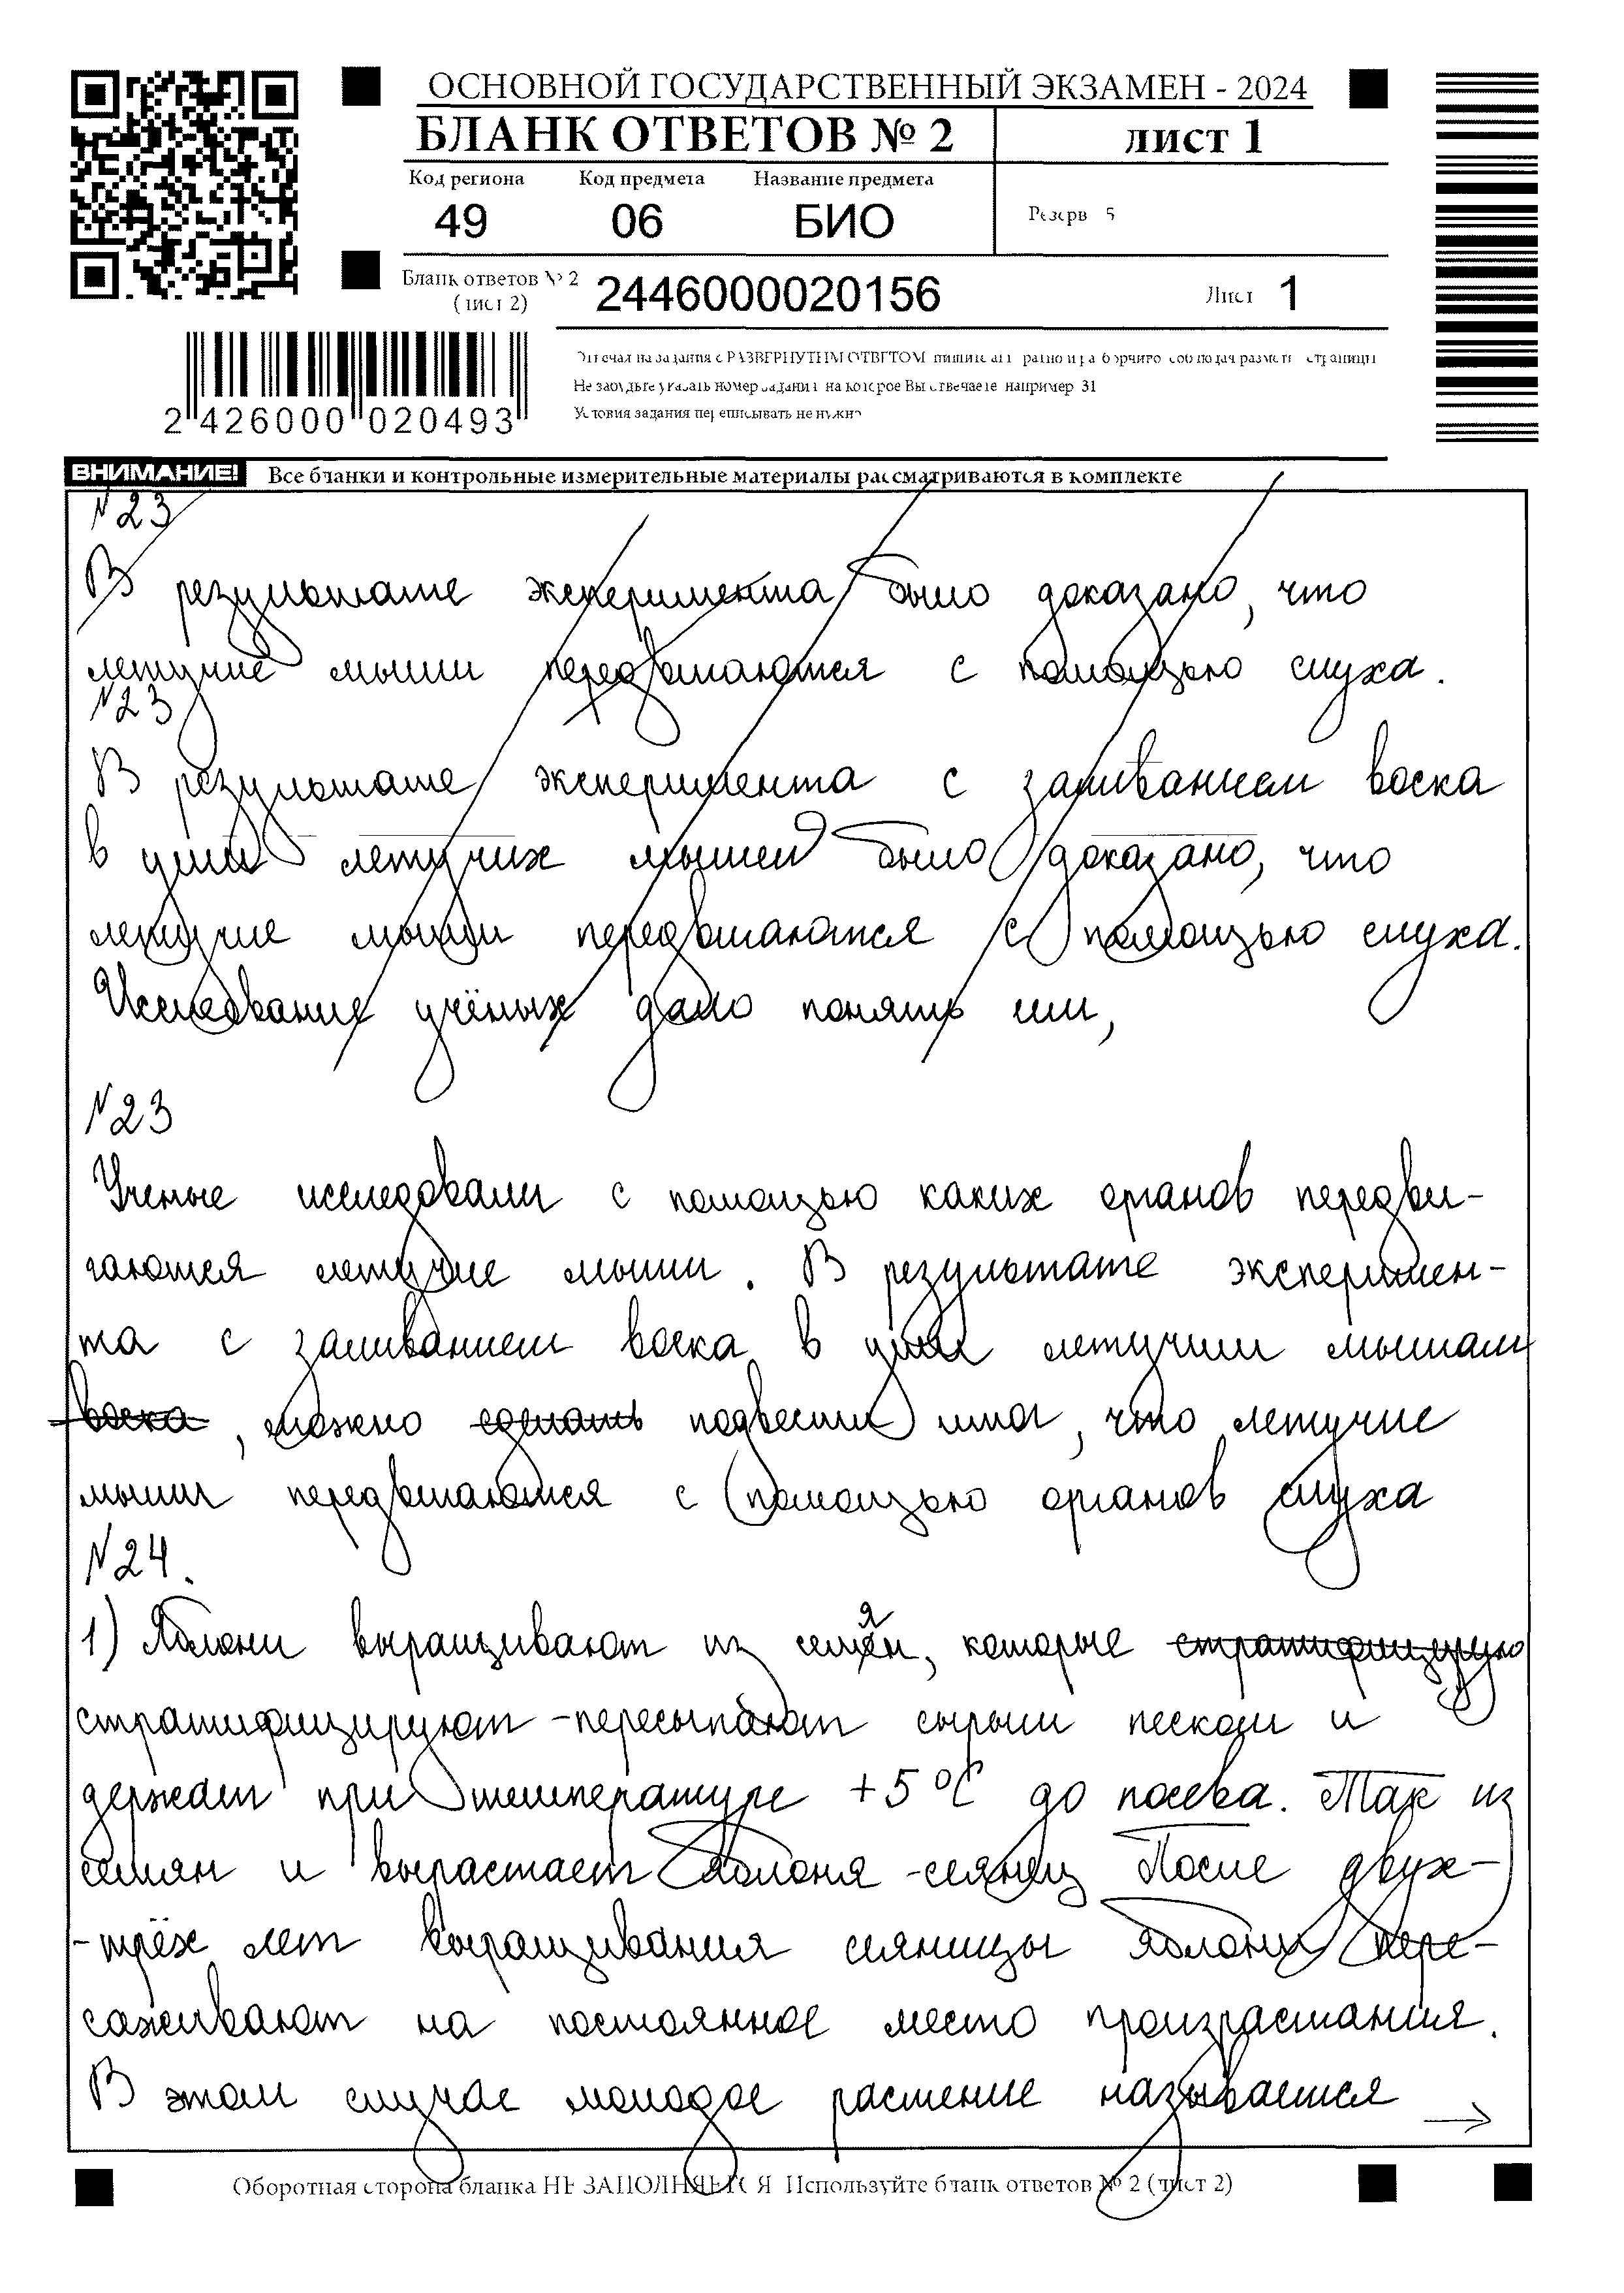 ОСНОВНОЙ ГОСУДАРСТВЕННЫЙ ЭКЗАМЕН - 2024
БЛАНК ОТВЕТОВ № 2
лист 1
Код региона Код предмета Название предмета
49 06 БИО
Резерв - 5
Бланк ответов № 2 (лист 2)
2446000020156
Лист 1
2 426000 020493
Отвечая на задания с РАЗВЕРНУТЫМ ОТВЕТОМ, пишите аккуратно и разборчиво, соблюдая разметку страницы
Не забудьте указать номер задания, на которое Вы отвечаете, например 31
Условия задания переписывать не нужно
ВНИМАНИЕ! Все бланки и контрольные измерительные материалы рассматриваются в комплекте
№23
В результате эксперимента было доказано, что
летучие мыши передвигаются с помощью слуха.
№23
В результате эксперимента с заливанием воска
в уши летучих мышей было доказано, что
летучие мыши передвигаются с помощью слуха.
Исследование учёных дало понять им,
№23
Ученые исследовали с помощью каких органов передви-
гаются летучие мыши. В результате эксперимен-
та с заливанием воска в уши летучим мышам
воска, можно сделать подвести итог, что летучие
мыши передвигаются с помощью органов слуха
№24.
1) Яблони выращивают из семян, которые стратифицирую
стратифицируют - пересыпают сырым песком и
держат при температуре +5°С до посева. Так из
семян и вырастает яблоня - сеянец После двух-
-трёх лет выращивания сеянцы яблони пере-
саживают на постоянное место произрастания.
В этом случае молодое растение называется →
Оборотная сторона бланка НЕ ЗАПОЛНЯЕТСЯ Используйте бланк ответов № 2 (лист 2)